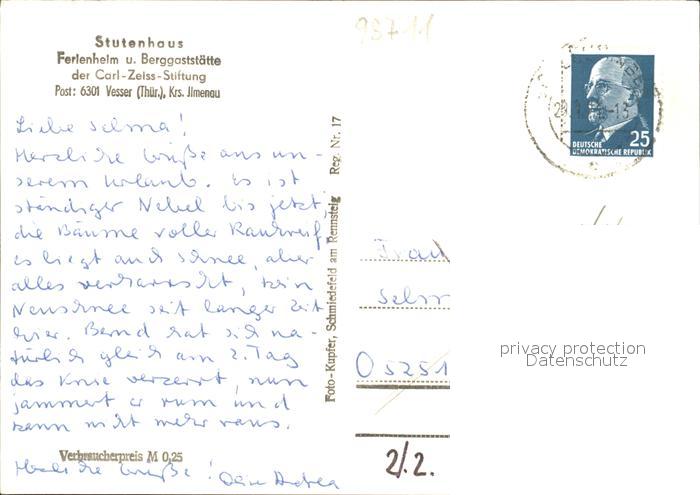 98711
Stutenhaus
Ferienheim u. Berggaststätte
der Carl-Zeiss-Stiftung
Post: 6301 Vesser (Thür.), Krs. Jlmenau
Liebe Selma!
Herzliche Grüße aus un-
serem Urlaub. Es ist
ständiger Nebel bis jetzt,
die Bäume voller Rauhreif,
es liegt auch Schnee, aber
alles verharscht, kein
Neuschnee seit langer Zeit
hier. Bernd hat sich na-
türlich gleich am 2. Tag
das Knie verzerrt, nun
jammert er rum und
kann nicht mehr raus.
Verbraucherpreis M 0,25
Herzliche Grüße! Deine Andrea
Foto-Kupfer, Schmiedefeld am Rennsteig Reg. Nr. 17
25
DEUTSCHE
DEMOKRATISCHE REPUBLIK
Frau
Selm
O 5251
2/2.
privacy protection
Datenschutz